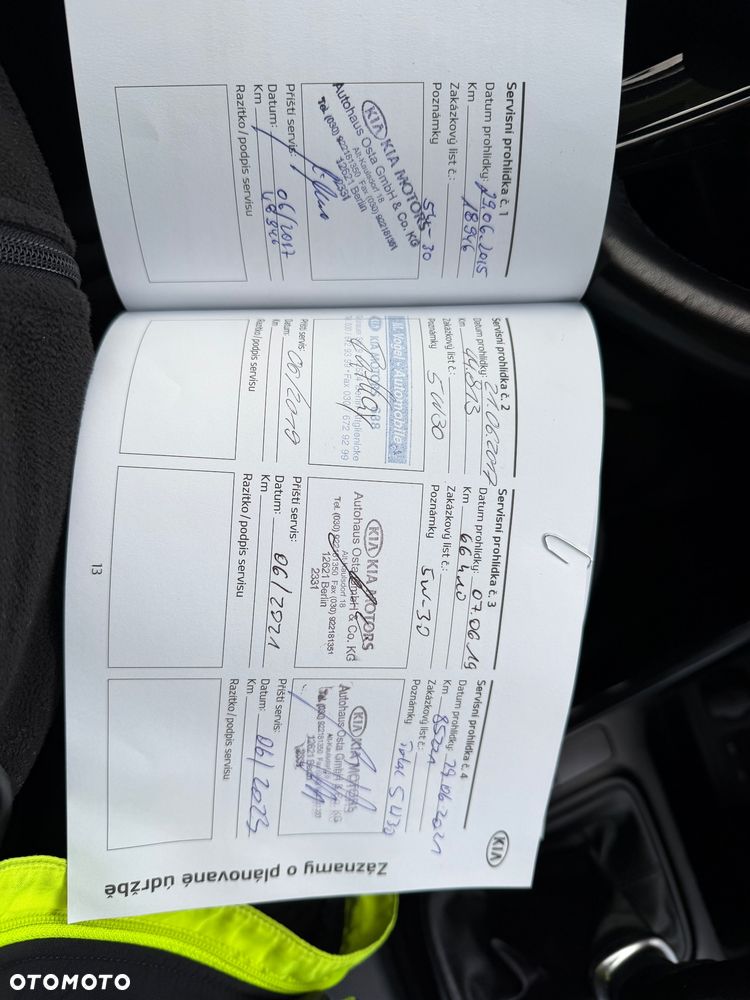 Servisní prohlídka č. 1
Datum prohlídky: 29.06.2015
Km 18946
Zakázkový list č.:
Poznámky 5W-30
KIA KIA MOTORS
Autohaus Osta GmbH & Co. KG
Alt-Kaulsdorf 18
Tel. (030) 922181350 Fax (030) 922181351
12621 Berlin
2331
Příští servis:
Datum: 06/2017
Km
Razítko/podpis servisu
Servisní prohlídka č. 2
Datum prohlídky: 21.06.2017
Km 44.813
Zakázkový list č.:
Poznámky 5W30
Vogel-Automobile
KIA MOTORS
Fax 030/ 672 92 99
Příští servis:
Datum: 06/2019
Km
Razítko/podpis servisu
Servisní prohlídka č. 3
Datum prohlídky: 07.06.19
Km 66410
Zakázkový list č.:
Poznámky 5W-30
KIA KIA MOTORS
Autohaus Osta GmbH & Co. KG
Alt-Kaulsdorf 18
Tel. (030) 922181350 Fax (030) 922181351
12621 Berlin
2331
Příští servis:
Datum: 06/2021
Km
Razítko/podpis servisu
13
Servisní prohlídka č. 4
Datum prohlídky: 29.06.2021
Km 85221
Zakázkový list č.:
Poznámky 5W30
KIA KIA MOTORS
Autohaus Osta GmbH & Co. KG
Alt-Kaulsdorf 18
Tel. (030) 922181350 Fax
12621 Berlin
2331
Příští servis:
Datum: 06/2023
Km
Razítko/podpis servisu
KIA
Záznamy o plánované údržbě
OTOMOTO